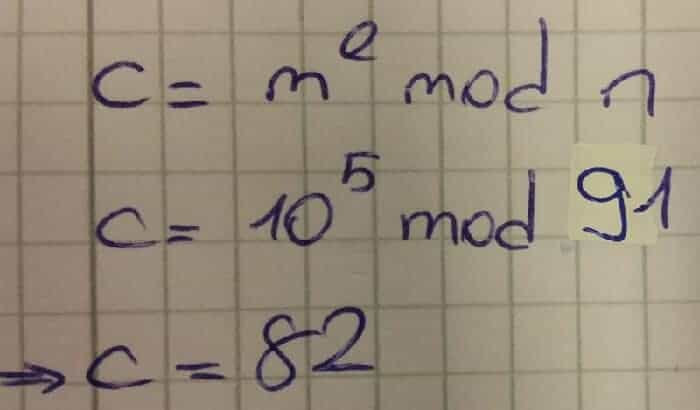 C = m^e mod n
C = 10^5 mod 91
→ C = 82